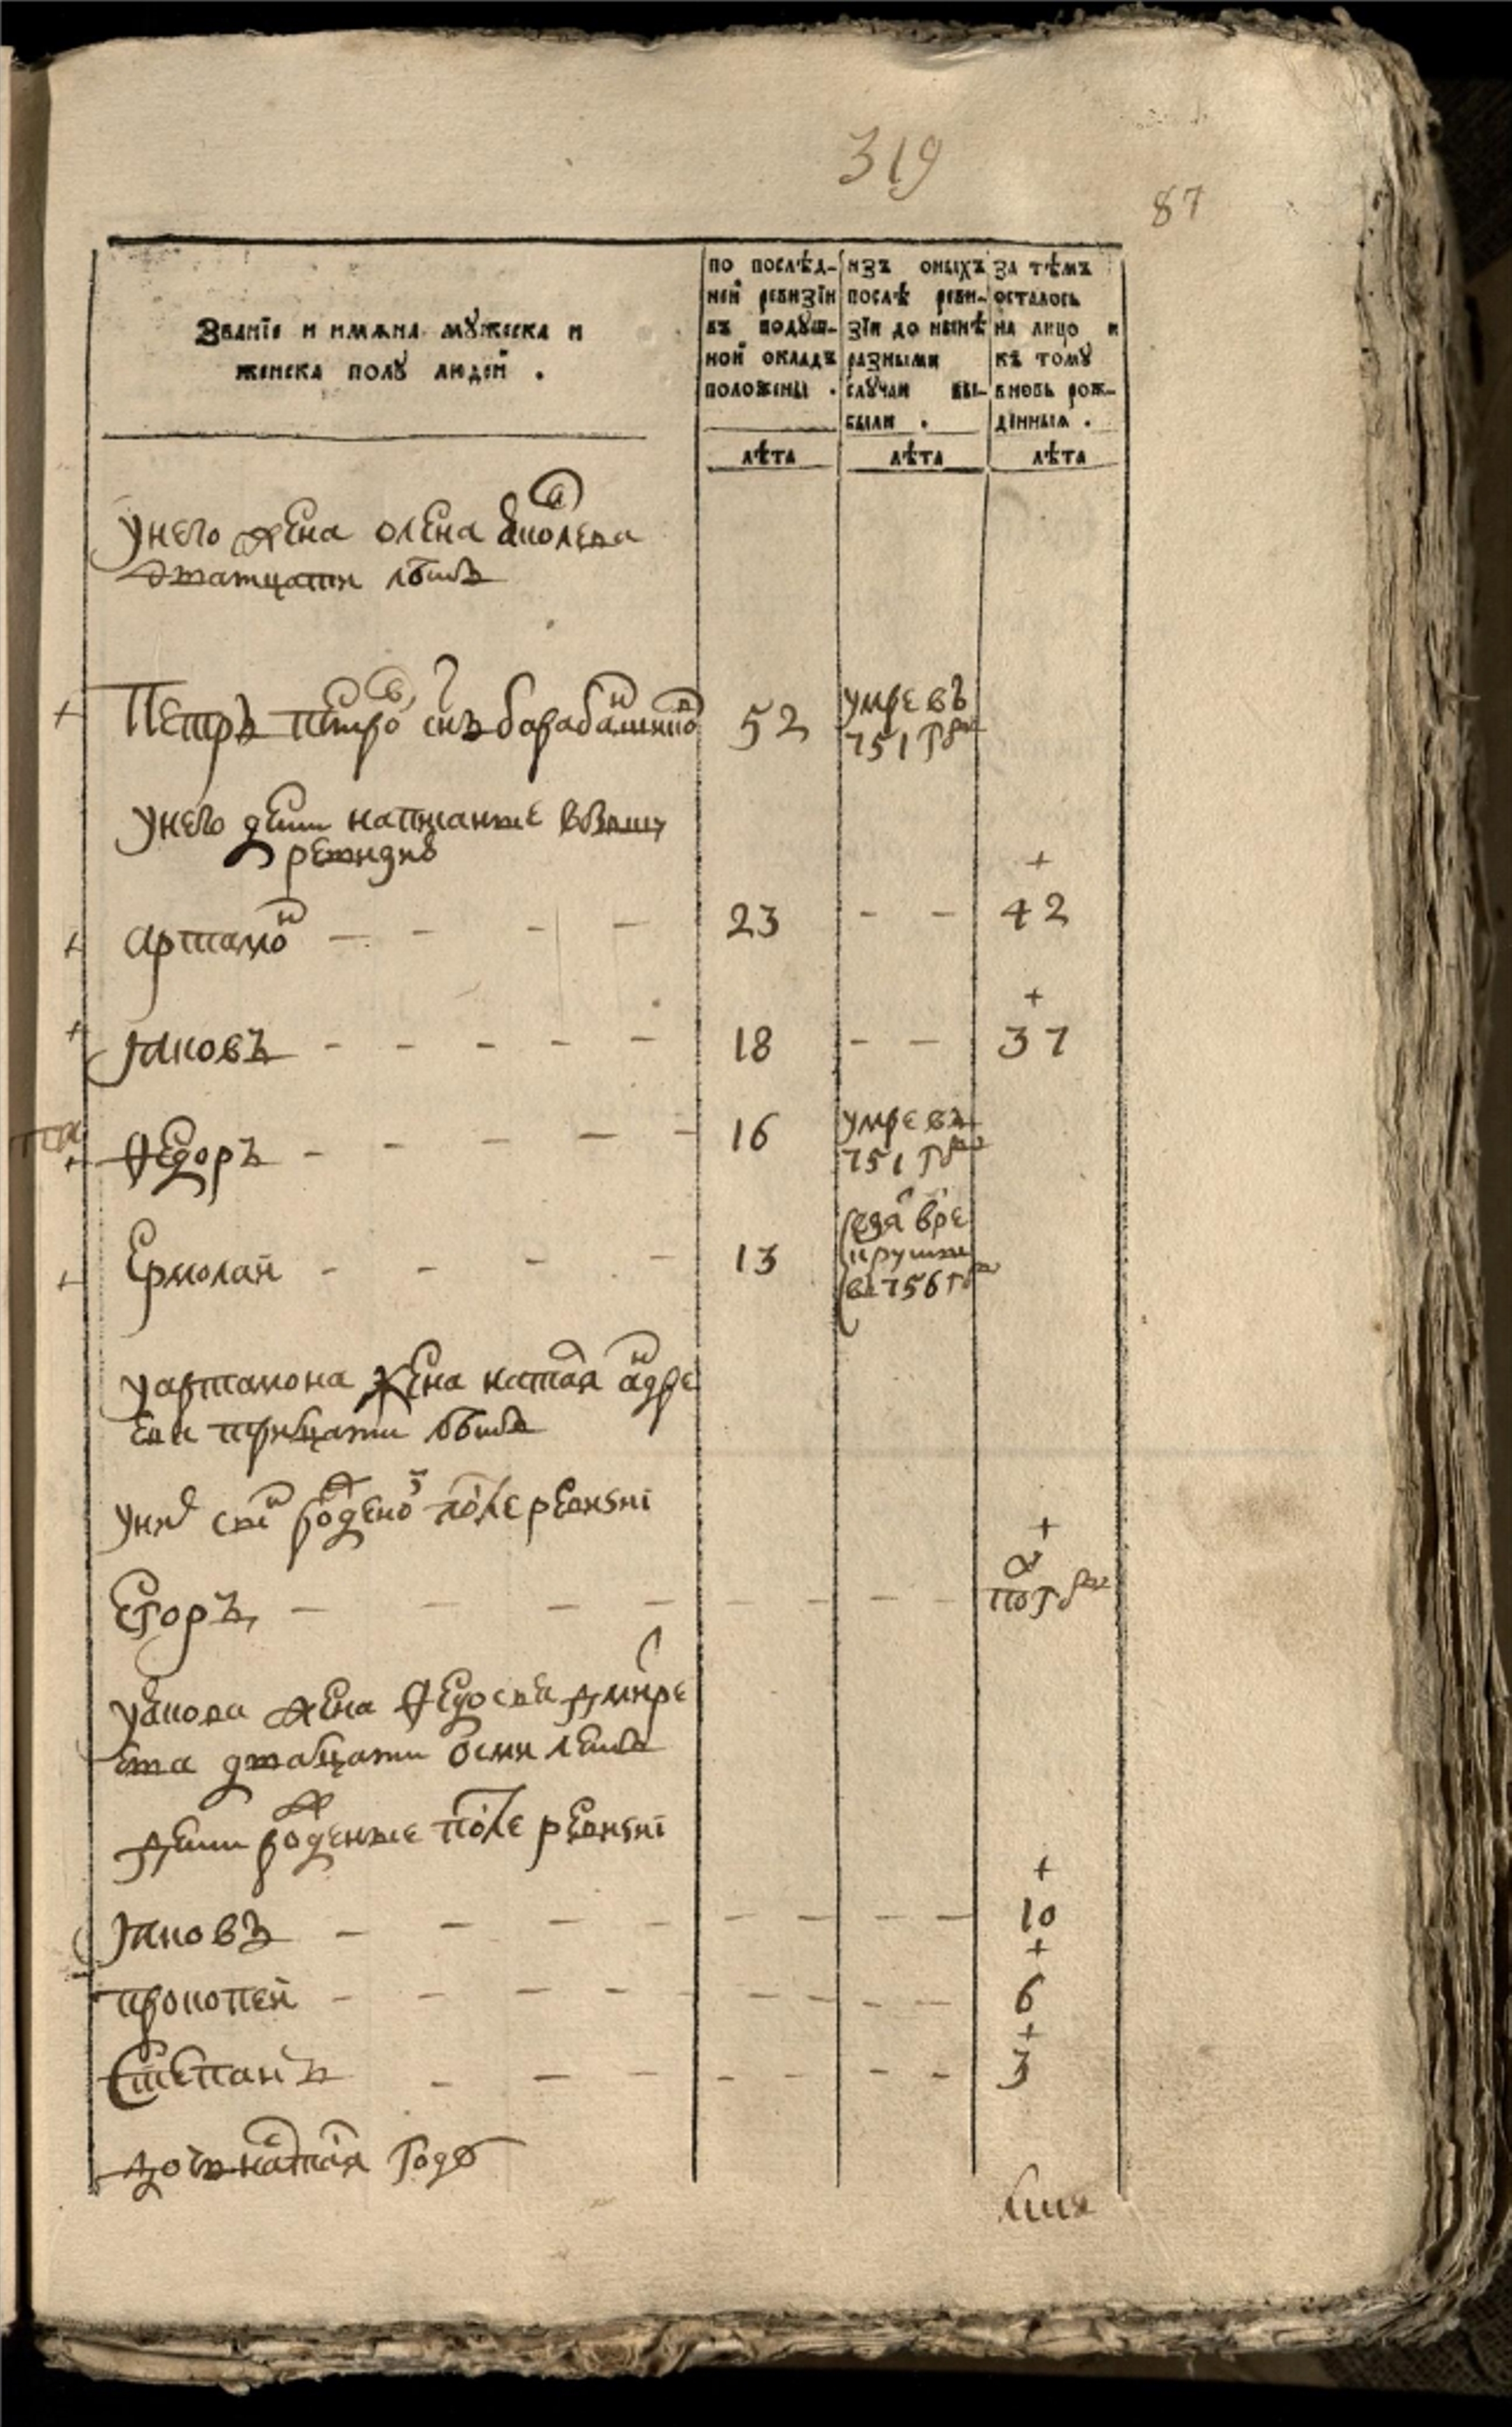 319
87
Званїе и имѧна мꙋжеска и
женска полꙋ людей .
по послѣд-
ней ревизїи
въ подꙋш-
ной окладъ
положены .
лѣта
изъ оныхъ
послѣ реви-
зїи до нынѣ
разными
слꙋчаи вы-
были .
лѣта
за тѣмъ
осталось
на лицо и
къ томꙋ
вновь рож-
денныѧ .
лѣта
у него жена олена
дватцати лѣтъ
Петръ петровъ снъ барабанщиковъ 52 умре въ
751 году
у него дети написанные в
+
артамон — - - — 23 - - 42
+
яковъ - - - - - 18 - - 37
Ѳедоръ - - - — - 16 умре въ
751 году
Ермолай - - - - 13 здан в ре
круты
въ 756 году
у артамона жена наталя андре
ева тритцати лѣтъ
у них сын рожденой после ревизиї
+
Егоръ — — — — - - - - полгоду
у якова жена Ѳедосья дмитре
ева дватцати осми летъ
дети рожденные после ревизиї
+
яковъ — — — - - - - - - 10
+
прокопей - - - - - - - - - 6
+
Степанъ - — - - - - - - 3
дочь наталя году